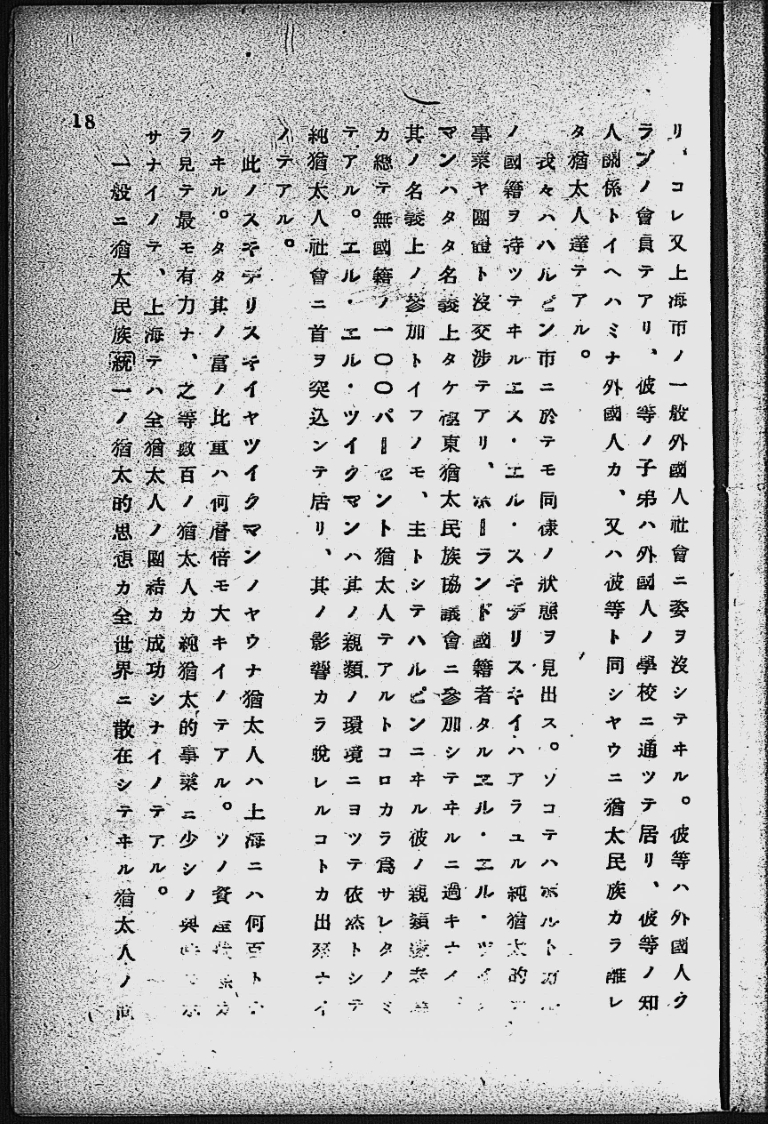 リ、コレ又上海市ノ一般外國人社會ニ姿ヲ沒シテヰル。彼等ハ外國人ク
ラブノ會員テアリ、彼等ノ子弟ハ外國人ノ學校ニ通ツテ居リ、彼等ノ知
人關係トイヘハミナ外國人カ、又ハ彼等ト同シヤウニ猶太民族カラ離レ
タ猶太人達テアル。
我々ハハルピン市ニ於テモ同樣ノ狀態ヲ見出ス。ソコテハポルトガ
ノ國籍ヲ持ツテヰルエス・エル・スキデリスキイハアラユル純猶太的
事業ヤ團體ト沒交渉テアリ、ポーランド國籍者タルエル・エル・ツイ
マンハタタ名義上タケ極東猶太民族協議會ニ參加シテヰルニ過キナイ
其ノ名義上ノ參加トイフノモ、主トシテハルピンニヰル彼ノ親類
カ總テ無國籍ノ一〇〇パーセント猶太人テアルトコロカラ爲サレタノミ
テアル。エル・エル・ツイクマンハ其ノ親類ノ環境ニヨツテ依然トシテ
純猶太人社會ニ首ヲ突込ンテ居リ、其ノ影響カラ脫レルコトカ出來ナイ
ノテアル。
此ノスキデリスキイヤツイクマンノヤウナ猶太人ハ上海ニハ何百ト
クヰル。タタ其ノ富ノ比重ハ何層倍モ大キイノテアル。ソノ資産
ラ見テ最モ有力ナ、之等數百ノ猶太人カ純猶太的事業ニ少シノ興味
サナイノテ、上海テハ全猶太人ノ團結カ成功シナイノテアル。
一般ニ猶太民族統一ノ猶太的思想カ全世界ニ散在シテヰル猶太人ノ間
18